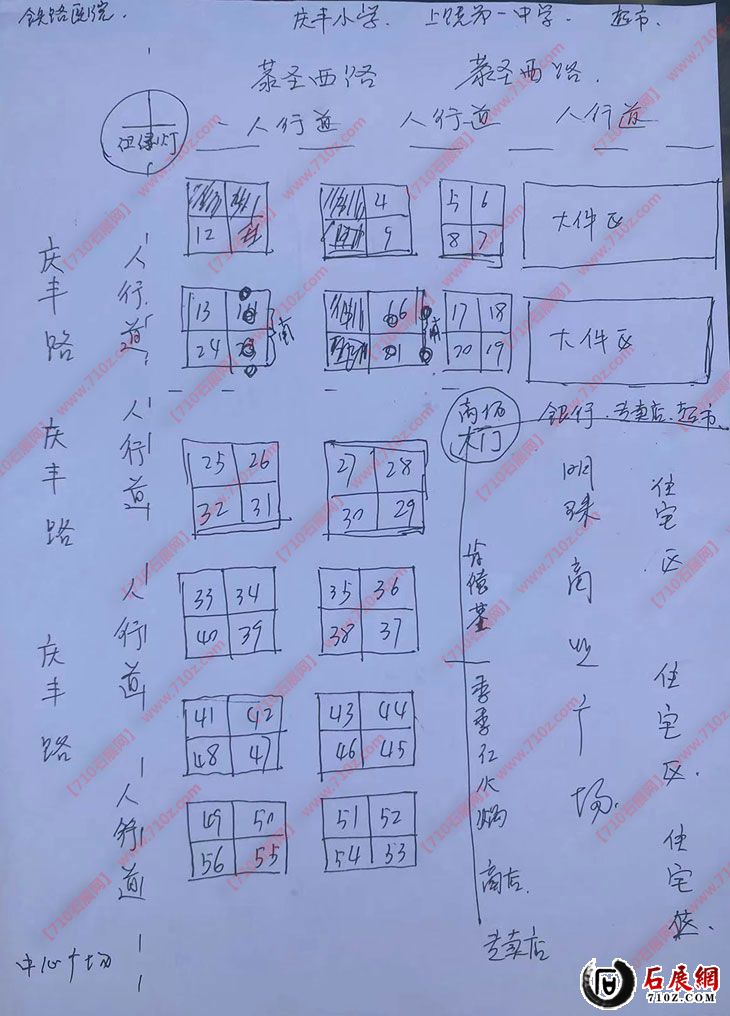 铁路医院 庆丰小学. 上饶第一中学. 超市.
慕圣西路 慕圣西路.
红绿灯 人行道 人行道 人行道
4 5 6 大件区
12 9 8 7
13 17 18 大件区
24 20 19
庆丰路
人行道
商场大门 银行.专卖店.超市.
25 26 27 28
32 31 30 29
庆丰路
人行道
33 34 35 36
40 39 38 37
人行道
41 42 43 44
48 47 46 45
庆丰路
49 50 51 52
56 55 54 53
人行道
肯德基
季季红火锅
商店.
专卖店
明珠商业广场.
住宅区
住宅区.
住宅
中心广场
【710石展网】www.710z.com
石展網
710Z.COM